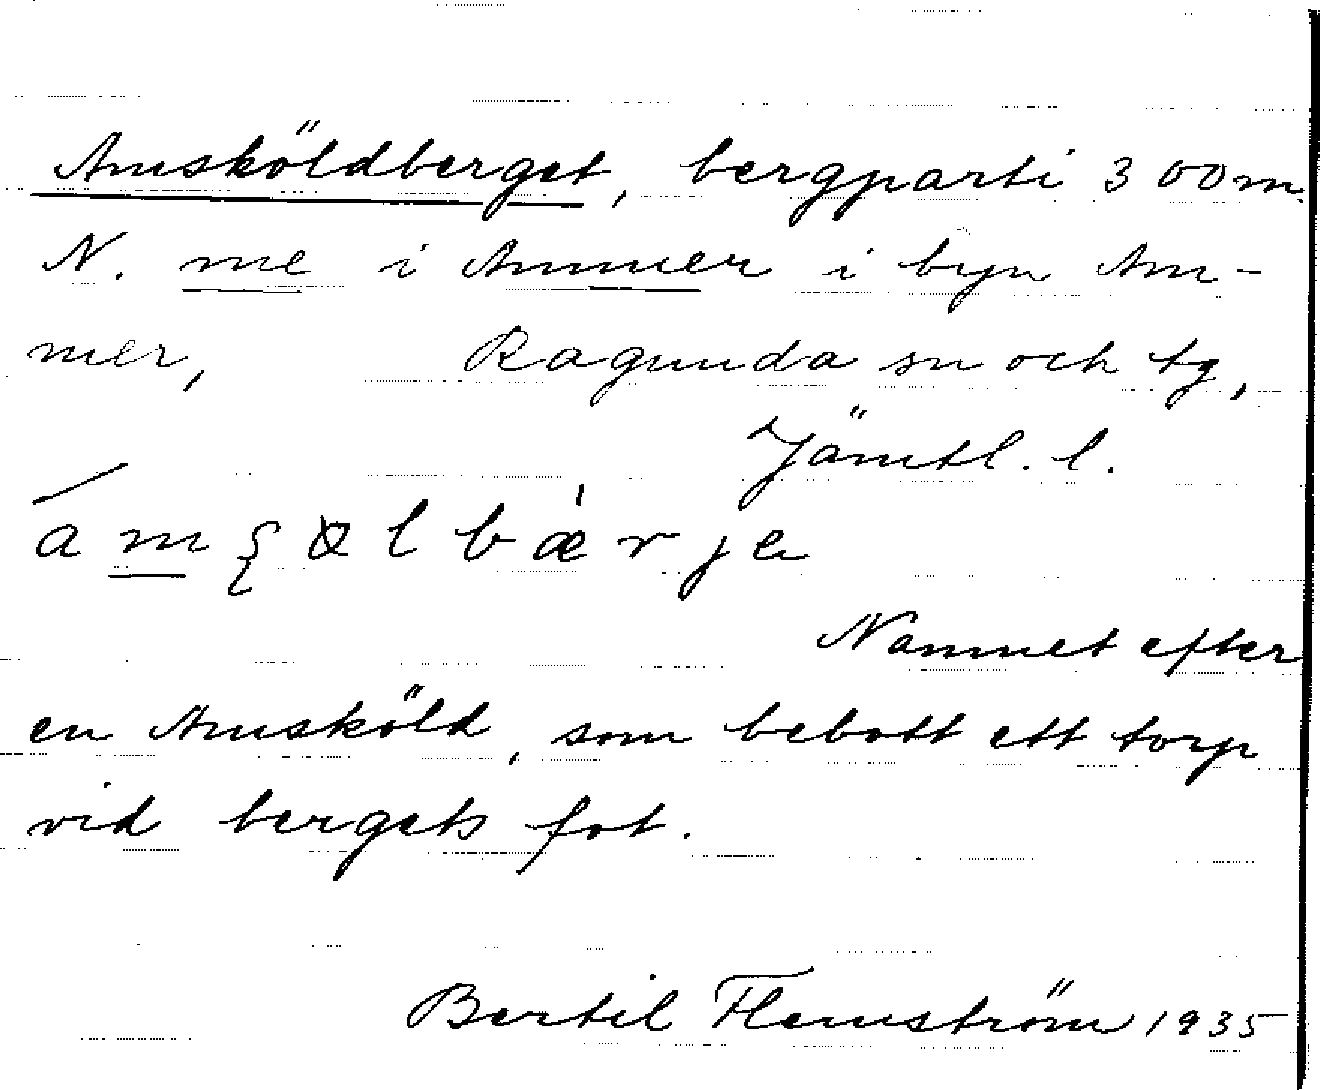 Amsköldberget, bergparti 300 m.
N. me i Ammer i byn Am-
mer, Ragunda sn och tg,
Jämtl. l.
Namnet efter
en Amsköld, som bebott ett torp
vid bergets fot.
Bertil Flemström 1935